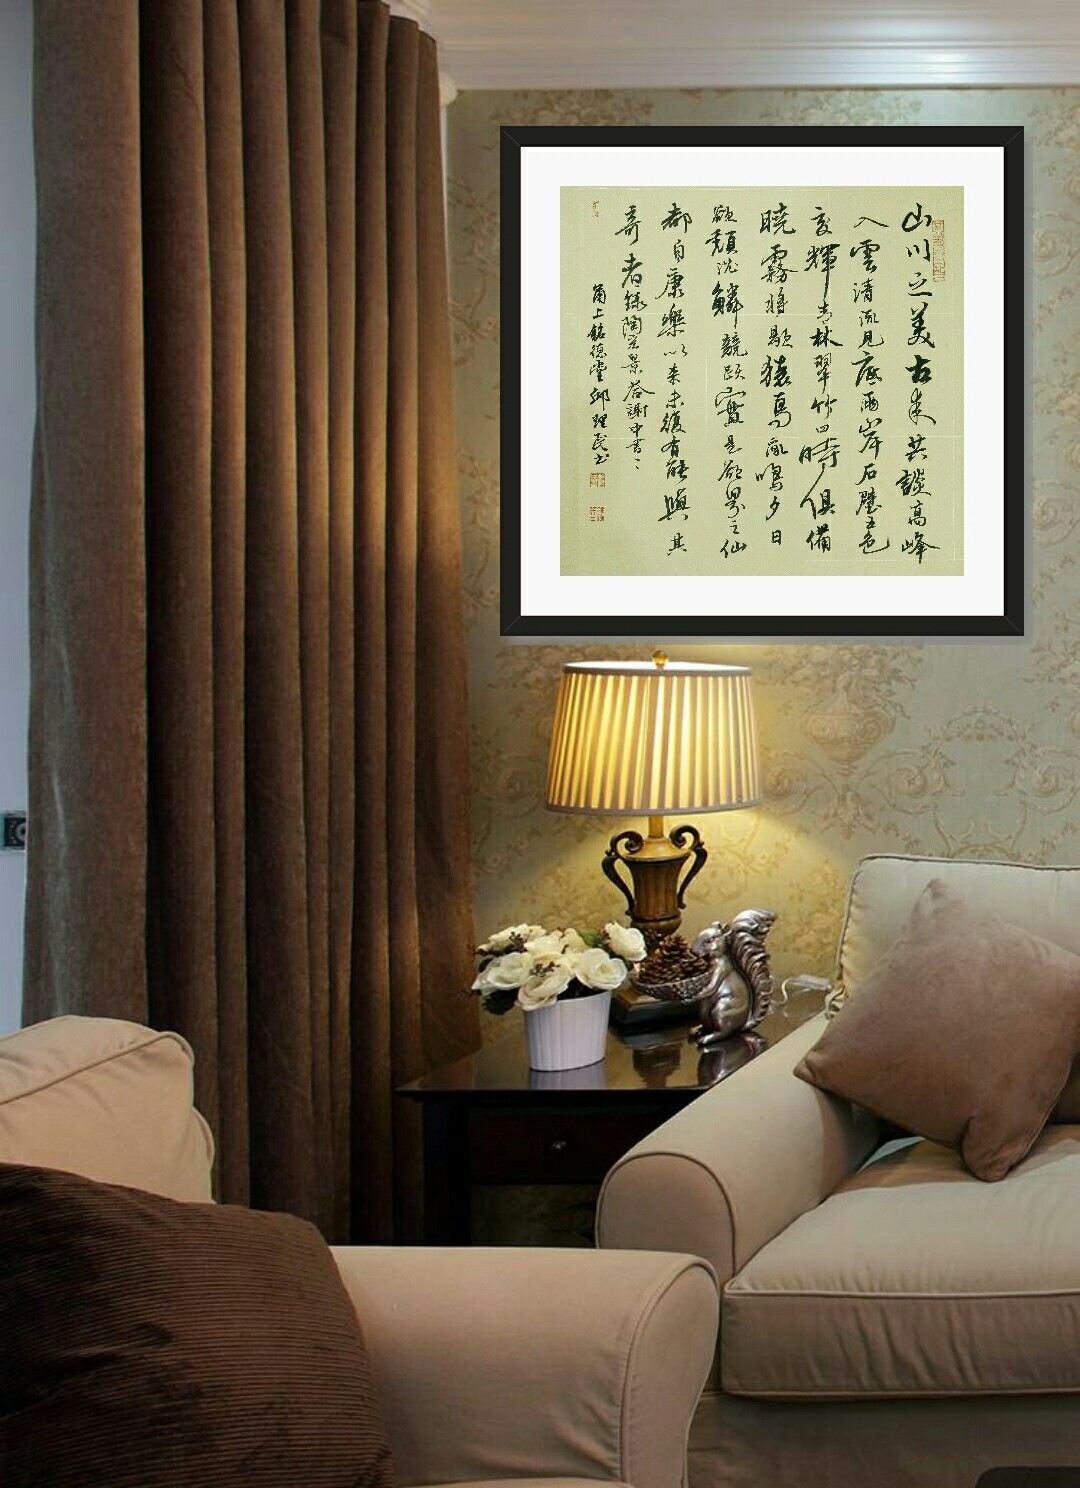 山川之美古来共談高峰
入雲清流見底兩岸石壁五色
交輝青林翠竹四時俱備
曉霧將歇猿鳥亂鳴夕日
欲頹沉鱗競躍實是欲界之仙
都自康樂以来未復有能與其
奇者錄陶宏景答謝中書〻
甬上銘德堂邱理民书